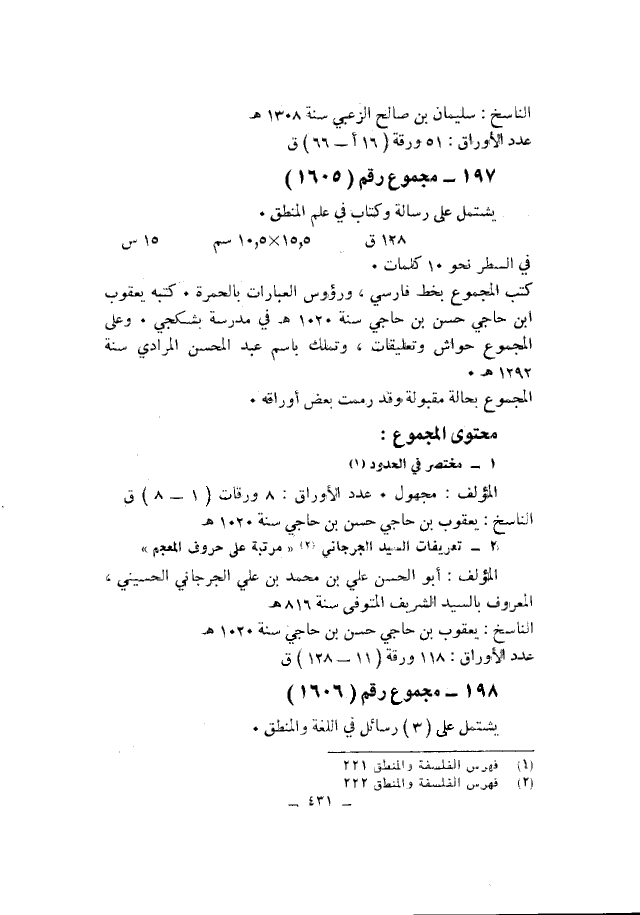 الناسخ : سليمان بن صالح الزعبي سنة ١٣٠٨ هـ
عدد الأوراق : ٥١ ورقة ( ١٦ أ ــ ٦٦ ) ق
١٩٧ ــ مجموع رقم ( ١٦٠٥ )
يشتمل على رسالة وكتاب في علم المنطق ٠
١٢٨ ق ١٥,٥×١٠,٥ سم ١٥ س
في السطر نحو ١٠ كلمات ٠
كتب المجموع بخط فارسي ، ورؤوس العبارات بالحمرة ٠ كتبه يعقوب
ابن حاجي حسن بن حاجي سنة ١٠٢٠ هـ في مدرسة بشكجي ٠ وعلى
المجموع حواش وتعليقات ، وتملك باسم عبد المحسن المرادي سنة
١٢٩٢ هـ ٠
المجموع بحالة مقبولة وقد رممت بعض أوراقه ٠
محتوى المجموع :
١ ــ مختصر في الحدود (١)
المؤلف : مجهول ٠ عدد الأوراق : ٨ ورقات ( ١ ــ ٨ ) ق
الناسخ : يعقوب بن حاجي حسن بن حاجي سنة ١٠٢٠ هـ
٢ ــ تعريفات السيد الجرجاني (٢) « مرتبة على حروف المعجم »
المؤلف : أبو الحسن علي بن محمد بن علي الجرجاني الحسيني ،
المعروف بالسيد الشريف المتوفى سنة ٨١٦ هـ
الناسخ : يعقوب بن حاجي حسن بن حاجي سنة ١٠٢٠ هـ
عدد الأوراق : ١١٨ ورقة ( ١١ ــ ١٢٨ ) ق
١٩٨ ــ مجموع رقم ( ١٦٠٦ )
يشتمل على ( ٣ ) رسائل في اللغة والمنطق ٠
(١) فهرس الفلسفة والمنطق ٢٢١
(٢) فهرس الفلسفة والمنطق ٢٢٢
ــ ٤٣١ ــ